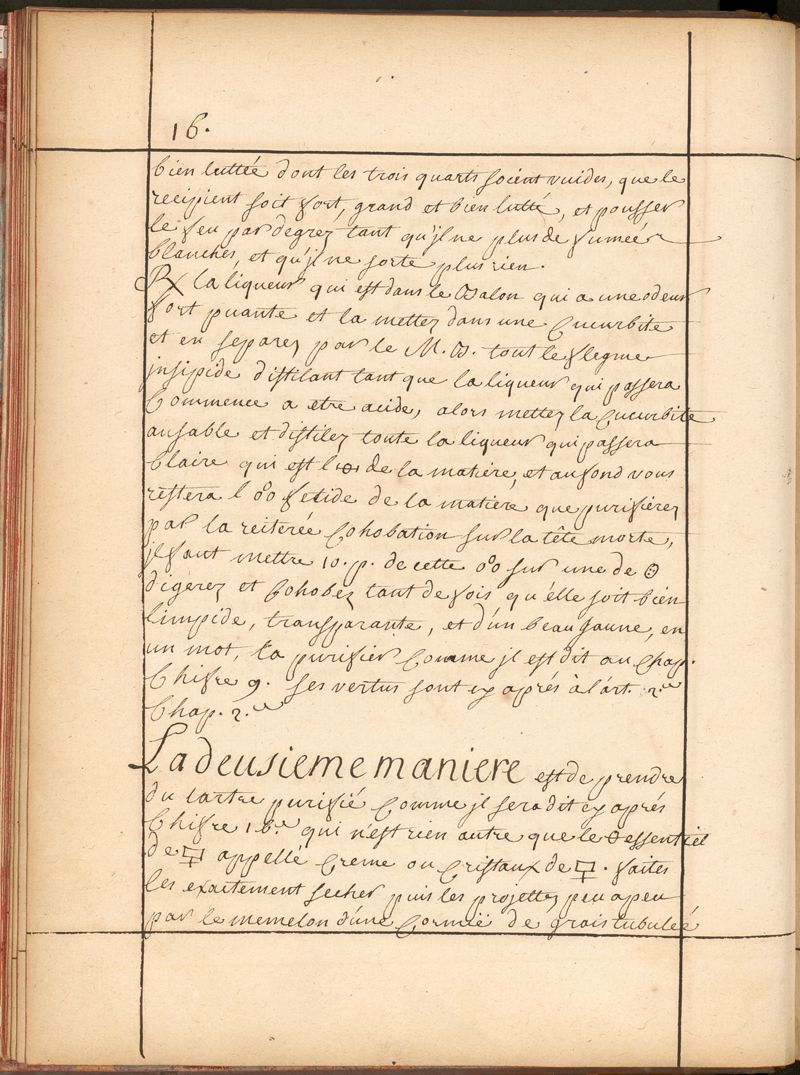 16.
bien luttée dont les trois quarts soient vuides, que le
recipient soit fort, grand et bien lutté, et pousser
le feu par degrez tant qu'jl ne plus de fumeé
blanches, et qu'jl ne sorte plus rien.
℞ la liqueur qui est dans le Balon qui a une odeur
fort puante et la mettez dans une Cucurbite
et en separez par le M. B. tout le flegme
jnsipide distilant tant que la liqueur qui passera
Commence a etre acide, alors mettez la Cucurbite
au sable et distilez toute la liqueur qui passera
Claire qui est l' de la matiére, et au fond vous
restera l'oºo fetide de la matiére que purifierez
par la reiterée Cohobation sur la tête morte,
jl faut mettre 10. p. de cette oºo sur une de
digerez et Cohobez tant de fois qu'élle soit bien
limpide, transparante, et d'ún beau Jaune, en
un mot, la purifier Comme jl est dit au Chap.
Chifre 9. ses vertus sont cy aprés à l'árt. 2.e
Chap. 2.e
La deusieme maniere est de prendre
du tartre purifié Comme jl sera dit cy aprés
Chifre 16.e qui n'est rien autre que le essentiel
de 🜿 appellé Creme ou Cristaux de 🜿. faites
les exactement secher puis les projettez peu a peu
par le memelon d'úne Cornuë de grais tubuleé